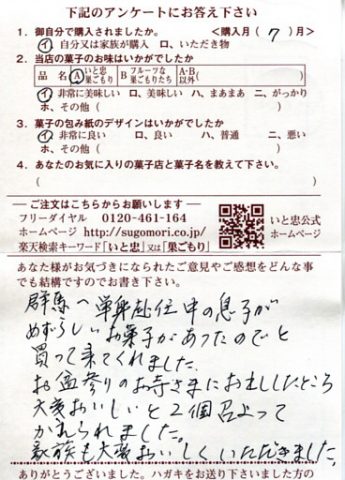 下記のアンケートにお答え下さい
1. 御自分で購入されましたか。 <購入月( 7 )月>
イ 自分又は家族が購入 ロ、いただき物
2. 当店の菓子のお味はいかがでしたか
品 名 A いと忠巣ごもり B フルーツな巣ごもりたち A・B以外( )
イ 非常に美味しい ロ、美味しい ハ、まあまあ ニ、がっかり
ホ、その他 ( )
3. 菓子の包み紙のデザインはいかがでしたか
イ 非常に良い ロ、良い ハ、普通 ニ、悪い
ホ、その他 ( )
4. あなたのお気に入りの菓子店と菓子名を教えて下さい。
( )
ご注文はこちらからお願いします
フリーダイヤル 0120-461-164
ホームページ http://sugomori.co.jp/
楽天検索キーワード「いと忠」又は「巣ごもり」
いと忠公式
ホームページ
あなた様がお気づきになられたご意見やご感想をどんな事
でも結構ですのでお書き下さい。
群馬へ単身赴任中の息子が
めずらしいお菓子があったのでと
買って来てくれました。
お盆参りのお寺さまにお出ししたところ
大変おいしいと2個召上って
かえられました。
家族も大変おいしくいただきました。
ありがとうございました。ハガキをお送り下さいました方の